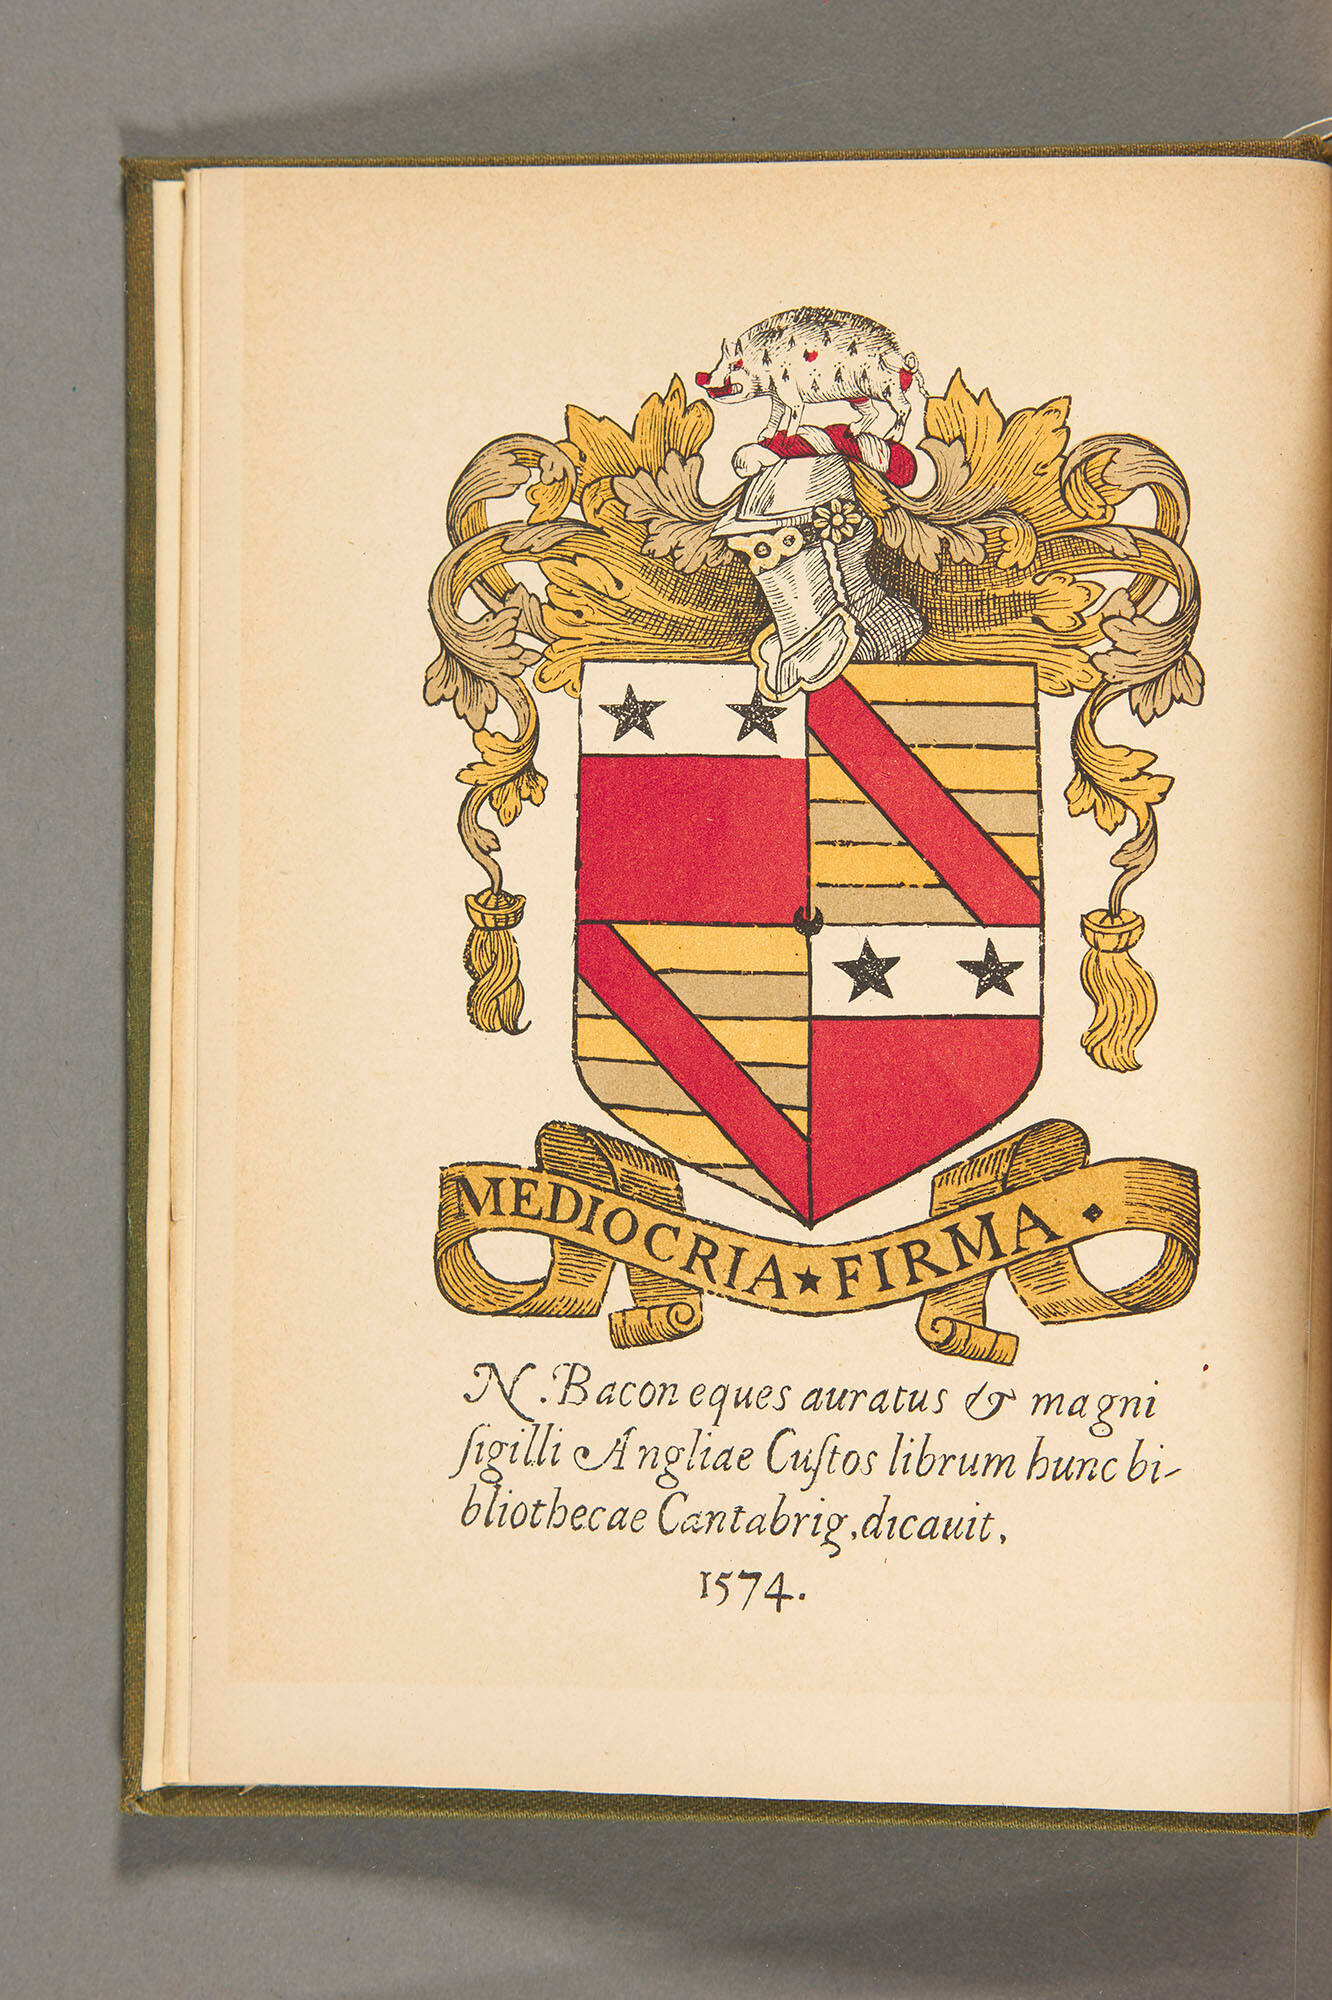 MEDIOCRIA ★ FIRMA.
N. Bacon eques auratus & magni
ſigilli Angliae Cuſtos librum hunc bi-
bliothecae Cantabrig, dicauit,
1574.